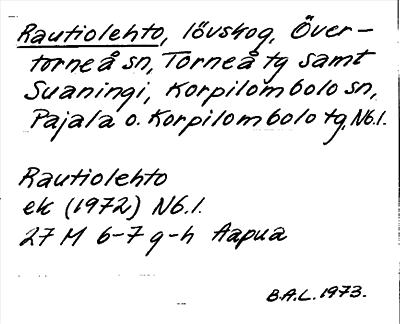 Rautiolehto, lövskog, Över-
torneå sn, Torneå tg samt
Suaningi, Korpilombolo sn,
Pajala o. Korpilombolo tg, Nb.l.
Rautiolehto
ek (1972) Nb.l.
27 M 6-7 g-h Aapua
B.A.L. 1973.